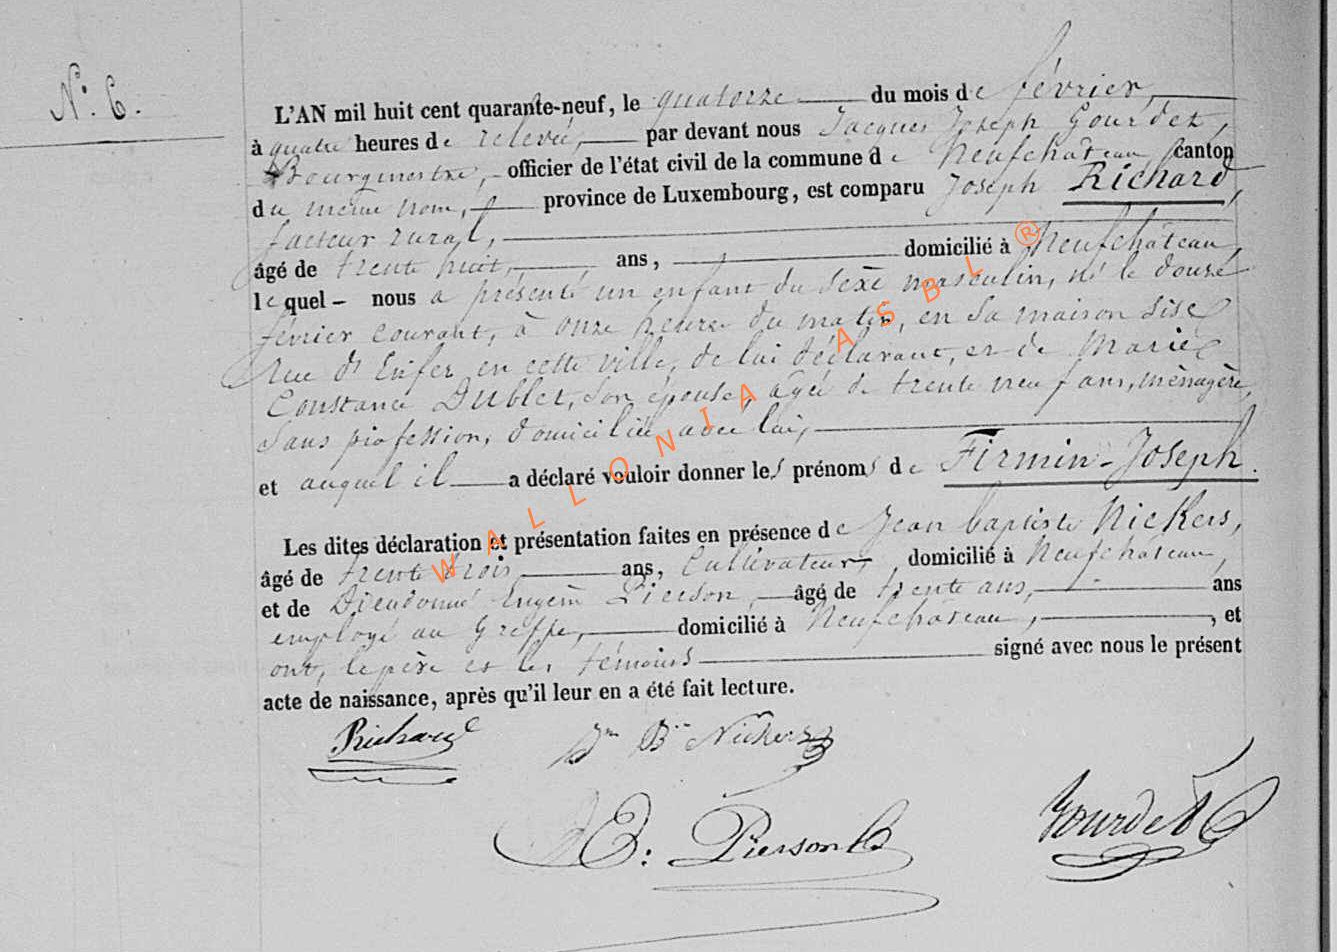 N.° 6.
L'AN mil huit cent quarante-neuf, le quatorze du mois de février,
à quatre heures de relevée, par devant nous Jacques Joseph Gourdet,
Bourgmestre, officier de l'état civil de la commune de Neufchâteau canton
du même nom, province de Luxembourg, est comparu Joseph Richard,
facteur rural,
âgé de trente huit, ans, domicilié à Neufchâteau,
lequel – nous a présenté un enfant du sexe masculin, né le douze
février courant, à onze heures du matin, en sa maison sise
Rue d'Enfer, en cette ville, de lui déclarant, et de Marie
Constance Dublet, son épouse, âgée de trente neuf ans, ménagère,
sans profession, domiciliée avec lui,
et auquel il a déclaré vouloir donner les prénoms de Firmin-Joseph.
Les dites déclaration et présentation faites en présence de Jean baptiste Nickers,
âgé de trente trois ans, Cultivateur, domicilié à Neufchâteau,
et de Dieudonné Eugène Pierson, âgé de trente ans, ans
employé au Greffe, domicilié à Neufchâteau, et
ont, le père et les témoins signé avec nous le présent
acte de naissance, après qu'il leur en a été fait lecture.
Richard Jn Bte Nickers
D E: Pierson Gourdet
WALLONIA ASBL ®